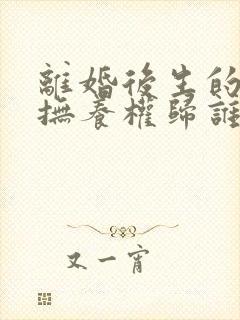 離婚後生的
撫養權歸誰
又一宵